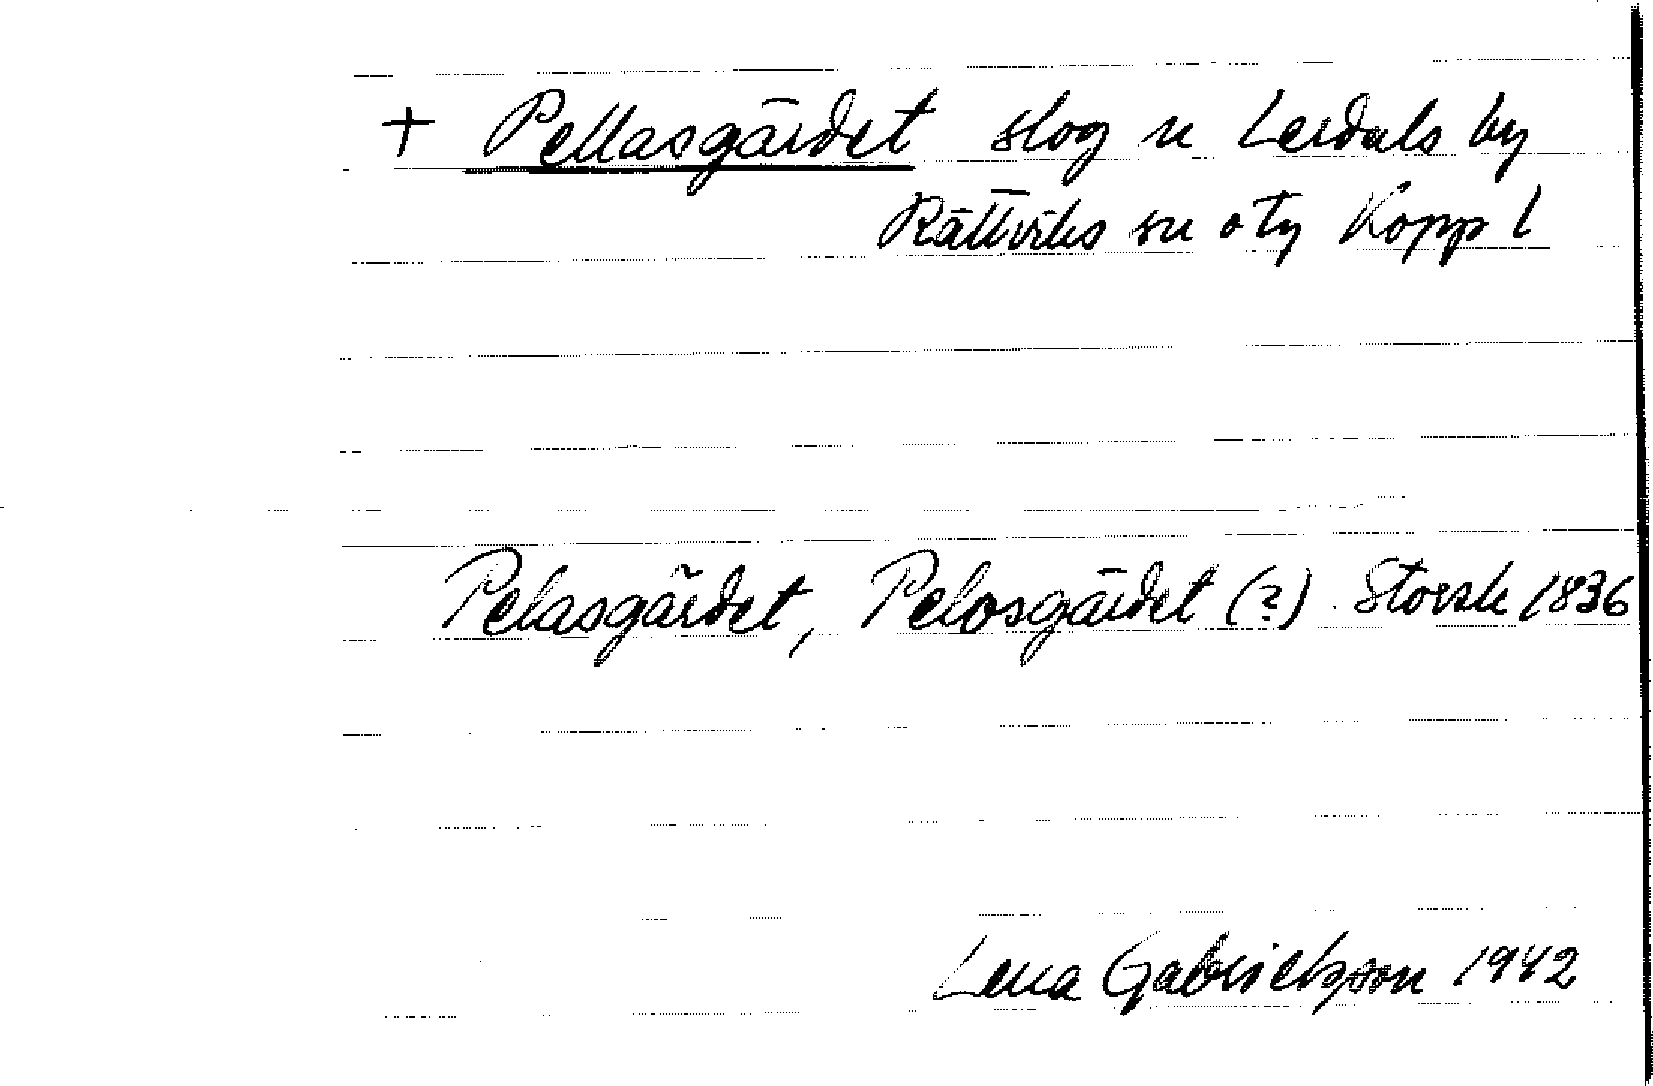 + Pellasgärdet slog u Lerdals by
Rättviks sn o tg Kopp l
Pelasgärdet, Pelosgärdet (?) Storsk 1836
Lena Gabrielsson 1942